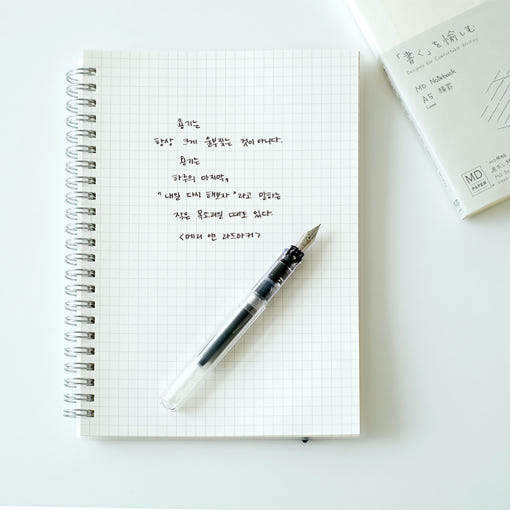 용기는
항상 크게 울부짖는 것이 아니다.
용기는
하루의 마지막,
"내일 다시 해보자"라고 말하는
작은 목소리일 때도 있다.
<메리 앤 라드마커>
「書く」を愉しむ
Designed for Comfortable Writing
MD Notebook
A5 横罫
Lined
MD
PAPER